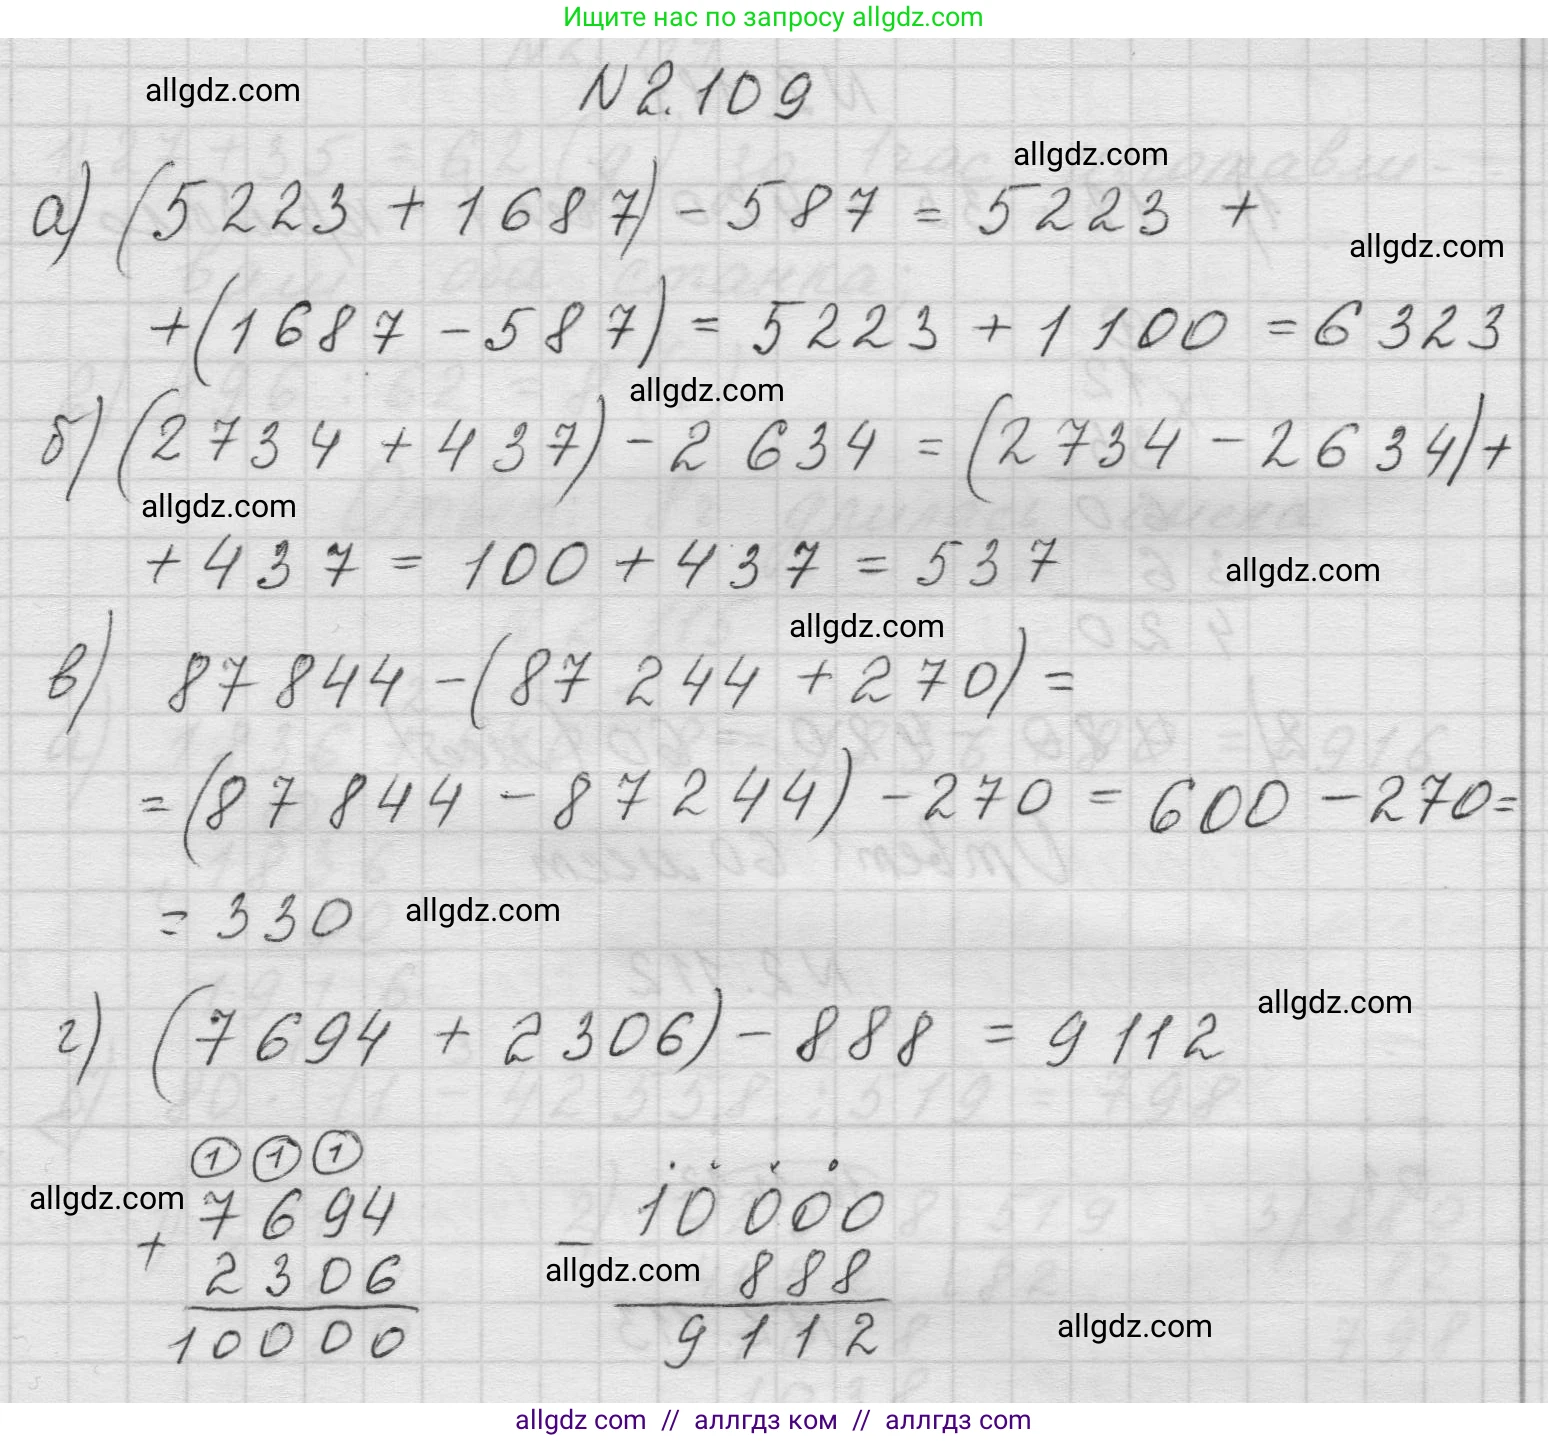 Ищите нас по запросу allgdz.com
allgdz.com
N 2.109
allgdz.com
а) (5223 + 1687) - 587 = 5223 +
allgdz.com
+ (1687 - 587) = 5223 + 1100 = 6323
allgdz.com
б) (2734 + 437) - 2634 = (2734 - 2634) +
allgdz.com
+ 437 = 100 + 437 = 537
allgdz.com
allgdz.com
в) 87844 - (87244 + 270) =
= (87844 - 87244) - 270 = 600 - 270 =
= 330
allgdz.com
allgdz.com
г) (7694 + 2306) - 888 = 9112
1 1 1
allgdz.com
7694
+
2306
10000
10000
-
allgdz.com
888
9112
allgdz.com
allgdz com // аллгдз ком // аллгдз com